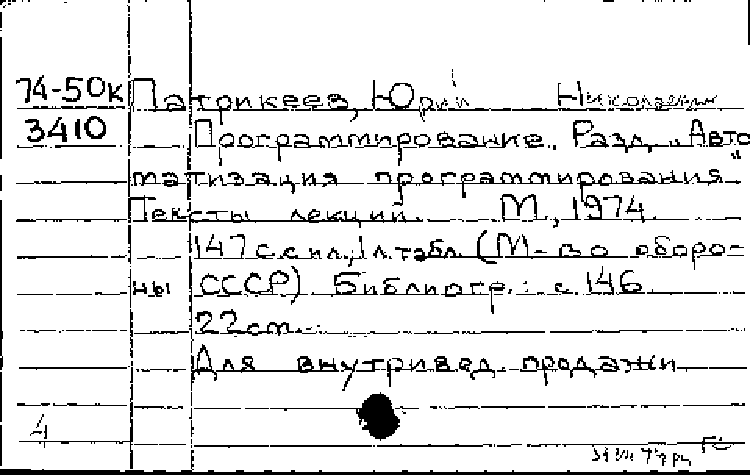 74-50к Патрикеев, Юрий Николаевич
3410 Программирование. Разд. „Авто
матизация программирования"
Тексты лекций. М., 1974.
147 с. с ил., 1 л. табл. (М-во оборо-
ны СССР) Библиогр.: с. 146
22 см.-
Для внутривед. продажи
4